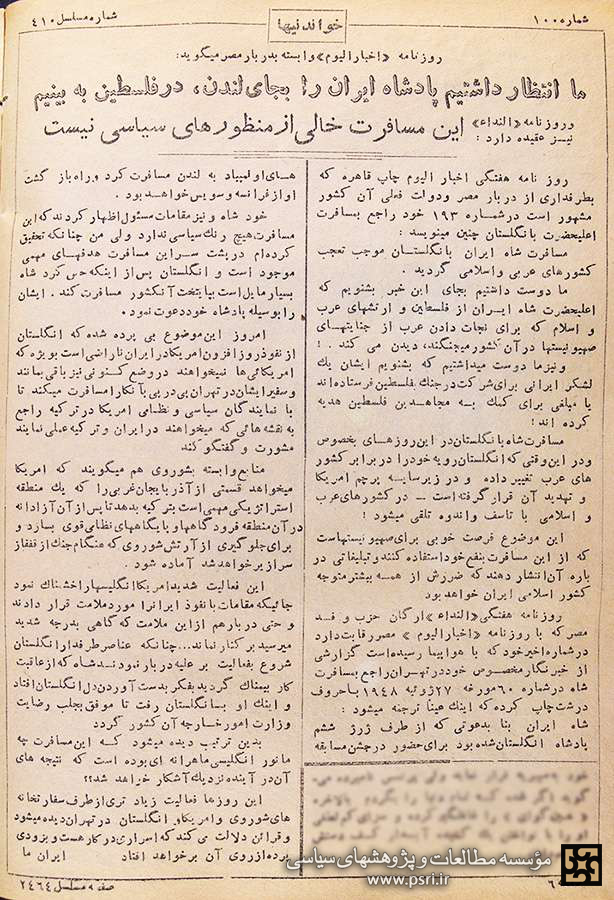 شماره ۱۰۰
خواندنیها
شماره مسلسل ۴۱۰
روزنامه «اخبارالیوم» وابسته بدربار مصر میگوید:
ما انتظار داشتیم پادشاه ایران را بجای لندن، در فلسطین به بینیم
و روزنامه «النداء» نیز عقیده دارد:
این مسافرت خالی از منظورهای سیاسی نیست
روزنامه هفتگی اخبار الیوم چاپ قاهره که
بطرفداری از دربار مصر ودولت فعلی آن کشور
مشهور است درشماره ۱۹۳ خود راجع بمسافرت
اعلیحضرت بانگلستان چنین مینویسد:
مسافرت شاه ایران بانگلستان موجب تعجب
کشورهای عربی واسلامی گردید.
ما دوست داشتیم بجای این خبر بشنویم که
اعلیحضرت شاه ایران از فلسطین و ارتشهای عرب
و اسلام که برای نجات دادن عرب از جنایتهای
صهیونیستها درآن کشور میجنگند، دیدن می کند.!
و نیز ما دوست میداشتیم که بشنویم ایشان یک
لشکر ایرانی برای شرکت درجنگ فلسطین فرستاده‌اند
یا مبلغی برای کمک به مجاهدین فلسطین هدیه
کرده اند!
مسافرت شاه بانگلستان در این روزهای بخصوص
ودر این وقتی که انگلستان رویه خود را در برابر کشور
های عرب تغییر داده و در زیر سایه پرچم امریکا
و تهدید آن قرار گرفته است ــ در کشورهای عرب
و اسلامی با تاسف واندوه تلقی میشود!
این موضوع فرصت خوبی برای صهیونیستهاست
که از این مسافرت بنفع خود استفاده کنند و تبلیغاتی در
باره آن انتشار دهند که ضررش از همه بیشتر متوجه
کشور اسلامی ایران خواهد بود
روزنامه هفتگی «النداء» ارگان حزب وفد
مصر که با روزنامه «اخبارالیوم» مصر رقابت دارد
درشماره اخیر خود که با هواپیما رسیده است گزارشی
از خبرنگار مخصوص خود در تهران راجع بمسافرت
شاه درشماره ۶۰ مورخه ۲۷ ژوئیه ۱۹۴۸ با حروف
درشت چاپ کرده که اینک عیناً ترجمه میشود:
شاه ایران بنا بدعوتی که از طرف ژرژ ششم
پادشاه انگلستان شده بود برای حضور در جشن مسابقه
های اولمپیاد به لندن مسافرت کرد و راه باز گشت
او از فرانسه و سویس خواهد بود.
خود شاه و نیز مقامات مسئول اظهار کردند که این
مسافرت هیچ رنگ سیاسی ندارد ولی من چنانکه تحقیق
کرده‌ام در پشت سر این مسافرت هدفهای مهمی
موجود است و انگلستان پس از اینکه حس کرد شاه
بسیار مایل است بپایتخت آنکشور مسافرت کند. ایشان
را بوسیله پادشاه خود دعوت نمود.
امروز این موضوع بی پرده شده که انگلستان
از نفوذ روز افزون امریکا در ایران ناراضی است بویژه که
امریکائی‌ها نمیخواهند در وضع کنونی نیز باقی بمانند
وسفیر ایشان در تهران پی در پی بآنکارا مسافرت میکند تا
با نمایندگان سیاسی و نظامی امریکا در ترکیه راجع
به نقشه هائی که میخواهند در ایران و ترکیه عملی نمایند
مشورت و گفتگو کند
منابع وابسته بشوروی هم میگویند که امریکا
میخواهد قسمتی از آذربایجان غربی را که یک منطقه
استراتژیکی مهمی است بترکیه بدهد تا پس از آن آزادانه
درآن منطقه فرودگاهها و پایگاههای نظامی قوی بسازد و
برای جلوگیری از ارتش شوروی که هنگام جنگ از قفقاز
سرازیر خواهد شد آماده شود.
این فعالیت شدید امریکا انگلیسها را خشمناک نمود
جائیکه مقامات با نفوذ ایرانرا مورد ملامت قرار دادند
و حتی دربار هم از این ملامت که گاهی بدرجه شدید
میرسید بر کنار نماند... چنانکه عناصر طرفدار انگلستان
شروع بفعالیت بر علیه دربار نمودند شاه که از عاقبت
کار بیمناک گردید بفکر بدست آوردن دل انگلستان افتاد
و اینک او بانگلستان رفت تا موفق بجلب رضایت
وزارت امور خارجه آن کشور گردد
بدین ترتیب دیده میشود که این مسافرت چه
مانور انگلیسی ماهرانه ای بوده است که نتیجه های
آن در آینده نزدیک آشکار خواهد شد؟؟
این روزها فعالیت زیاد تری از طرف سفارتخانه
های شوروی و امریکا و انگلستان در تهران دیده میشود
و قرائن دلالت می کند که اسراری در کار هست و بزودی
پرده از روی آن برخواهد افتاد ایران ما
صفحه مسلسل ۲۴۶۴
مؤسسه مطالعات و پژوهشهای سیاسی
www.psri.ir